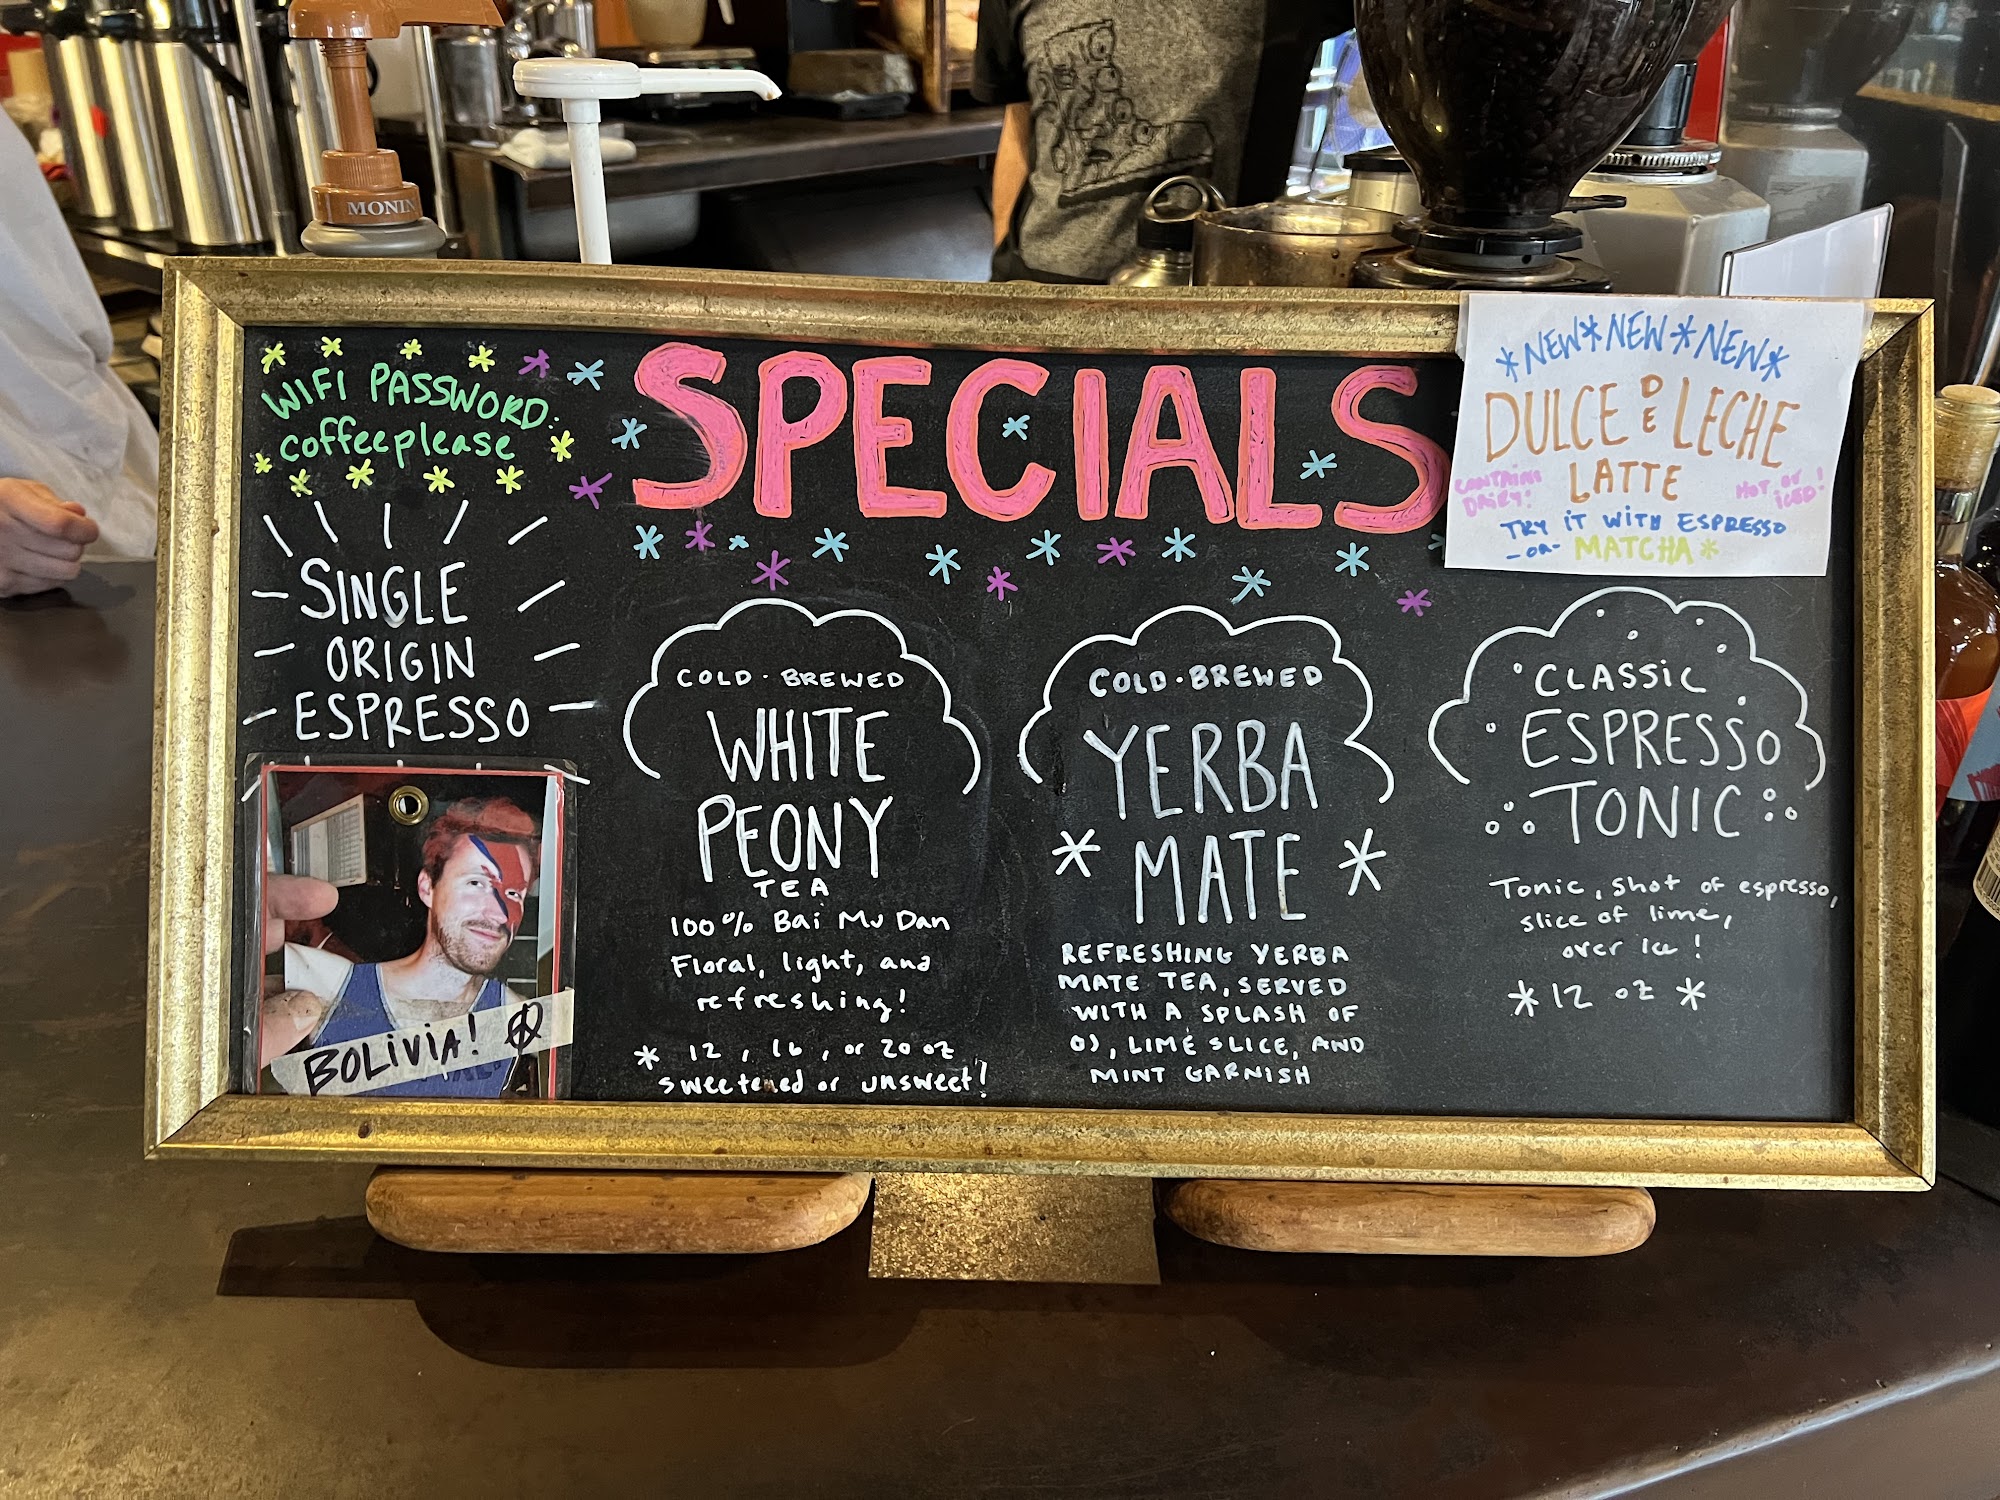 MONIN
WIFI PASSWORD:
coffeeplease
SPECIALS
*NEW*NEW*NEW*
DULCE DE LECHE
LATTE
CONTAINS
DAIRY!
HOT or
ICED!
TRY IT WITH ESPRESSO
-OR- MATCHA*
SINGLE
ORIGIN
ESPRESSO
BOLIVIA!
COLD-BREWED
WHITE
PEONY
TEA
100% Bai Mu Dan
Floral, light, and
refreshing!
* 12, 16, or 20 oz
sweetened or unsweet!
COLD-BREWED
YERBA
* MATE *
REFRESHING YERBA
MATE TEA, SERVED
WITH A SPLASH OF
OJ, LIME SLICE, AND
MINT GARNISH
CLASSIC
ESPRESSO
TONIC
Tonic, shot of espresso,
slice of lime,
over ice!
* 12 oz *